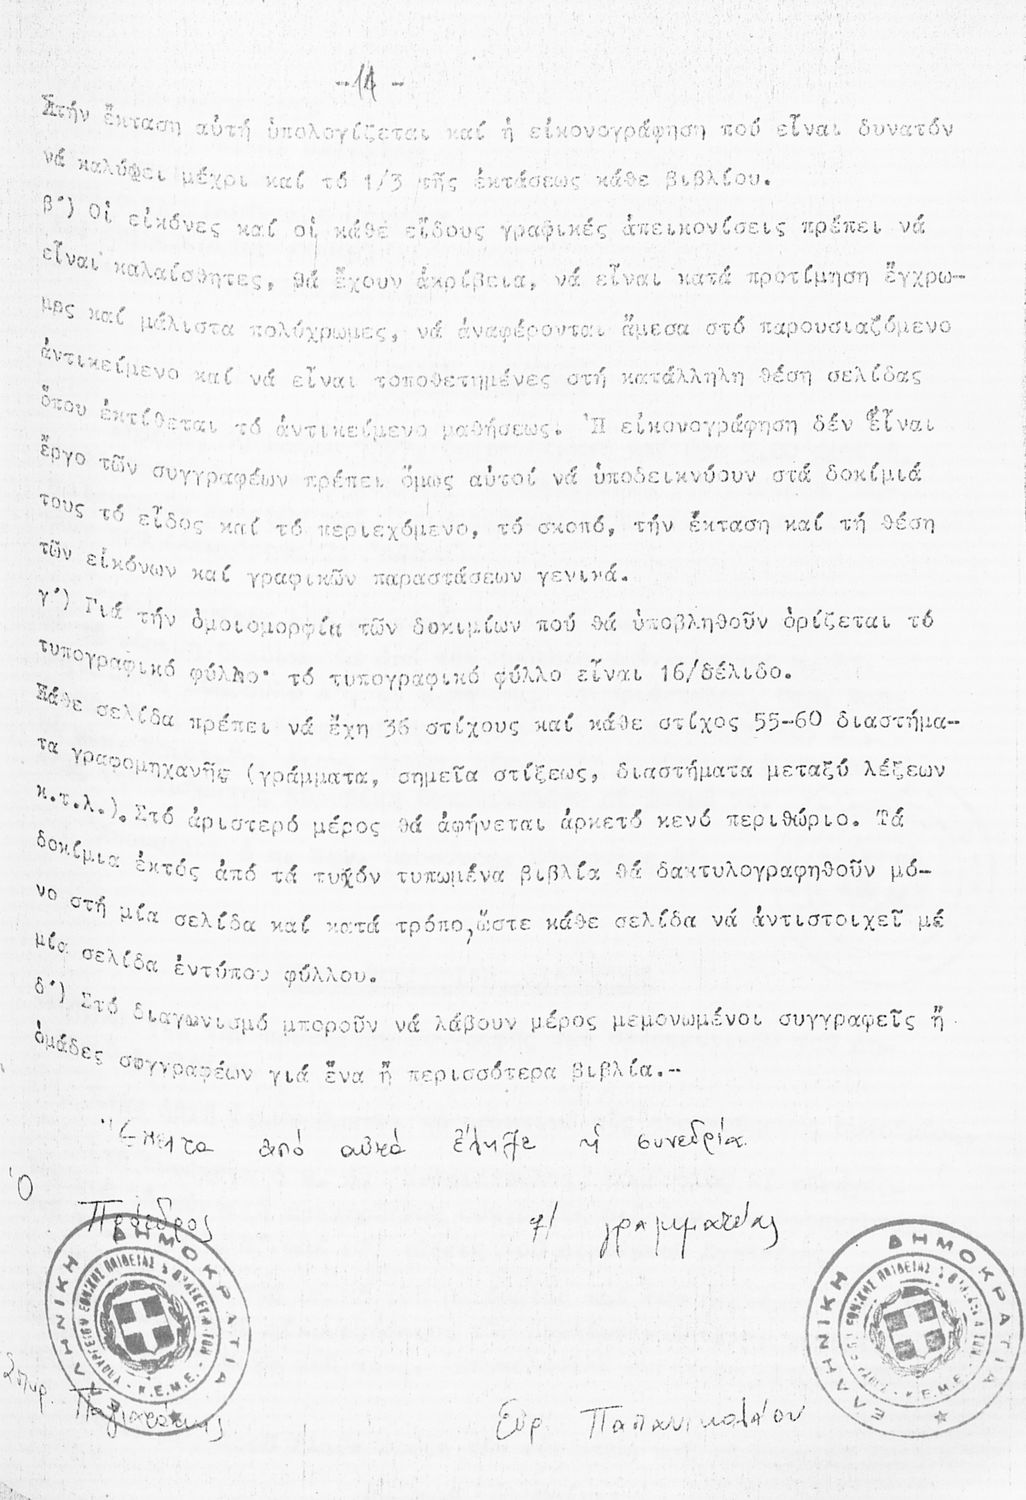 -14-
Στήν ἔκταση αὐτή ὑπολογίζεται καί ἡ εἰκονογράφηση πού εἶναι δυνατόν
νά καλύψει μέχρι καί τό 1/3 τῆς ἐκτάσεως κάθε βιβλίου.
β΄) Οἱ εἰκόνες καί οἱ κάθε εἴδους γραφικές ἀπεικονίσεις πρέπει νά
εἶναι καλαίσθητες, θά ἔχουν ἀκρίβεια, νά εἶναι κατά προτίμηση ἔγχρω-
μες καί μάλιστα πολύχρωμες, νά ἀναφέρονται ἄμεσα στό παρουσιαζόμενο
ἀντικείμενο καί νά εἶναι τοποθετημένες στή κατάλληλη θέση σελίδας
ὅπου ἐκτίθεται τό ἀντικείμενο μαθήσεως. Ἡ εἰκονογράφηση δέν εἶναι
ἔργο τῶν συγγραφέων πρέπει ὅμως αὐτοί νά ὑποδεικνύουν στά δοκίμιά
τους τό εἶδος καί τό περιεχόμενο, τό σκοπό, τήν ἔκταση καί τή θέση
τῶν εἰκόνων καί γραφικῶν παραστάσεων γενικά.
γ΄) Γιά τήν ὁμοιομορφία τῶν δοκιμίων πού θά ὑποβληθοῦν ὁρίζεται τό
τυπογραφικό φύλλο· τό τυπογραφικό φύλλο εἶναι 16/σέλιδο.
Κάθε σελίδα πρέπει νά ἔχη 36 στίχους καί κάθε στίχος 55-60 διαστήμα-
τα γραφομηχανῆς (γράμματα, σημεῖα στίξεως, διαστήματα μεταξύ λέξεων
κ.τ.λ.). Στό ἀριστερό μέρος θά ἀφήνεται ἀρκετό κενό περιθώριο. Τά
δοκίμια ἐκτός ἀπό τά τυχόν τυπωμένα βιβλία θά δακτυλογραφηθοῦν μό-
νο στή μία σελίδα καί κατά τρόπο, ὥστε κάθε σελίδα νά ἀντιστοιχεῖ μέ
μία σελίδα ἐντύπου φύλλου.
δ΄) Στό διαγωνισμό μποροῦν νά λάβουν μέρος μεμονωμένοι συγγραφεῖς ἤ
ὁμάδες συγγραφέων γιά ἕνα ἤ περισσότερα βιβλία.-
Ἔπειτα ἀπό αὐτά ἔληξε ἡ συνεδρία
Ὁ
Πρόεδρος
γραμματέας
ΕΛΛΗΝΙΚΗ ΔΗΜΟΚΡΑΤΙΑ
ΥΠΟΥΡΓΕΙΟΝ ΕΘΝΙΚΗΣ ΠΑΙΔΕΙΑΣ & ΘΡΗΣΚΕΥΜΑΤΩΝ
Κ.Ε.Μ.Ε.
ΕΛΛΗΝΙΚΗ ΔΗΜΟΚΡΑΤΙΑ
ΕΘΝΙΚΗΣ ΠΑΙΔΕΙΑΣ
Κ.Ε.Μ.Ε.
Σπυρ.
Εὐρ. Παπανικολάου